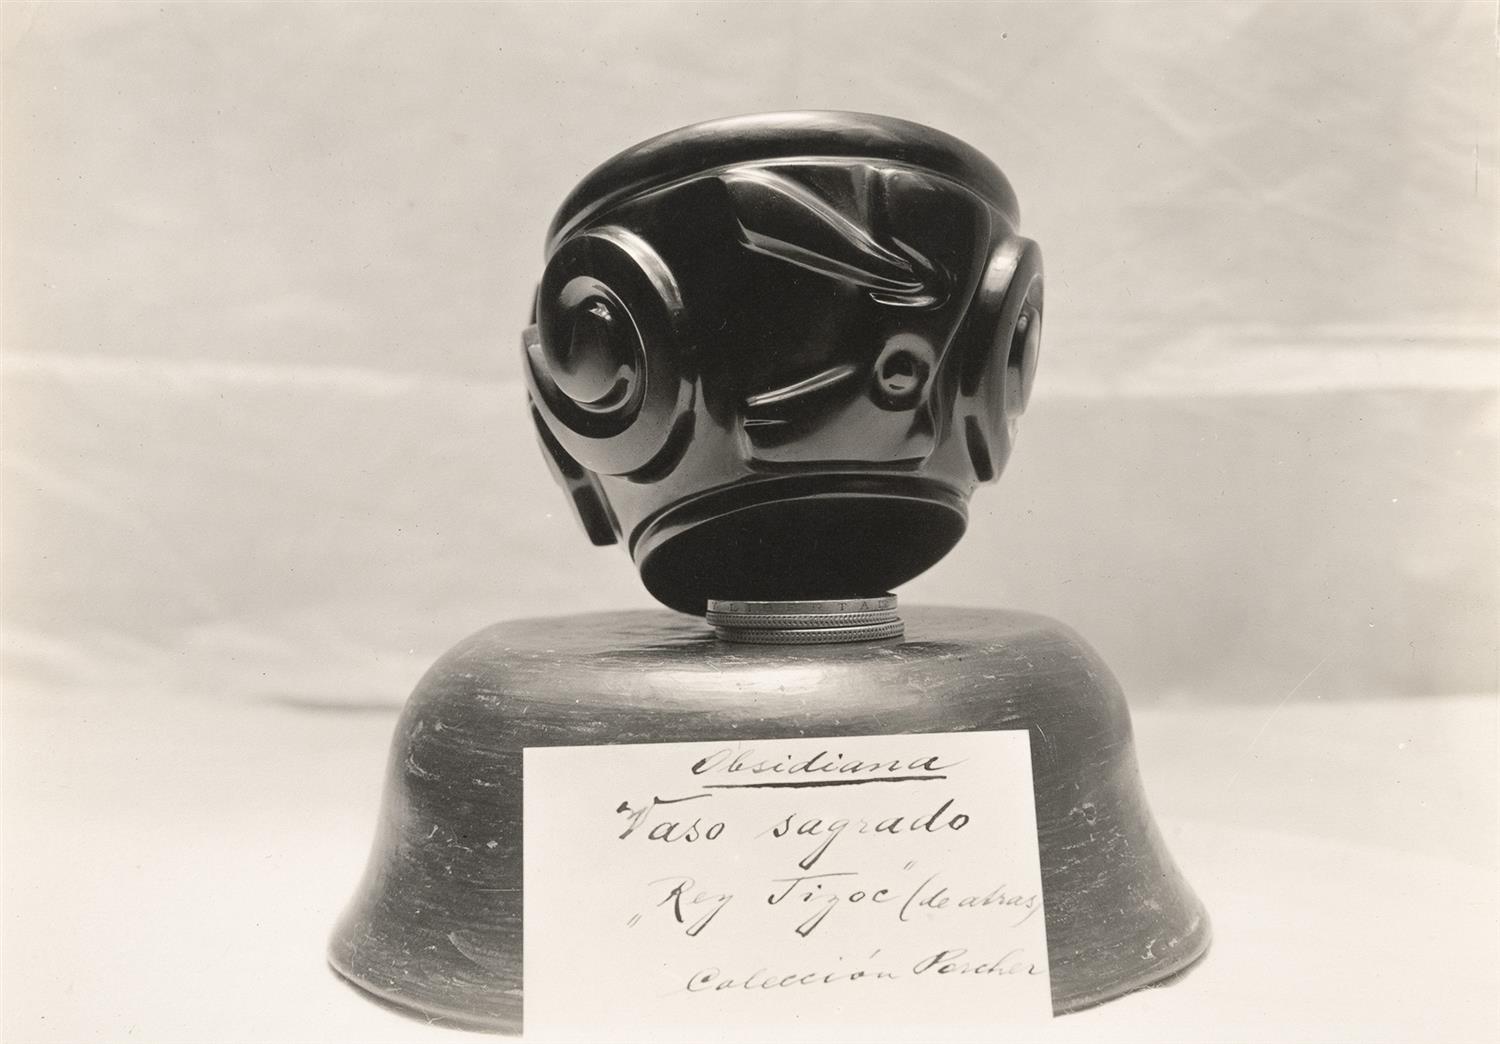 Y LIBERTAD
Obsidiana
Vaso sagrado
„Rey Tizoc" (de atras)
Colección Porcher